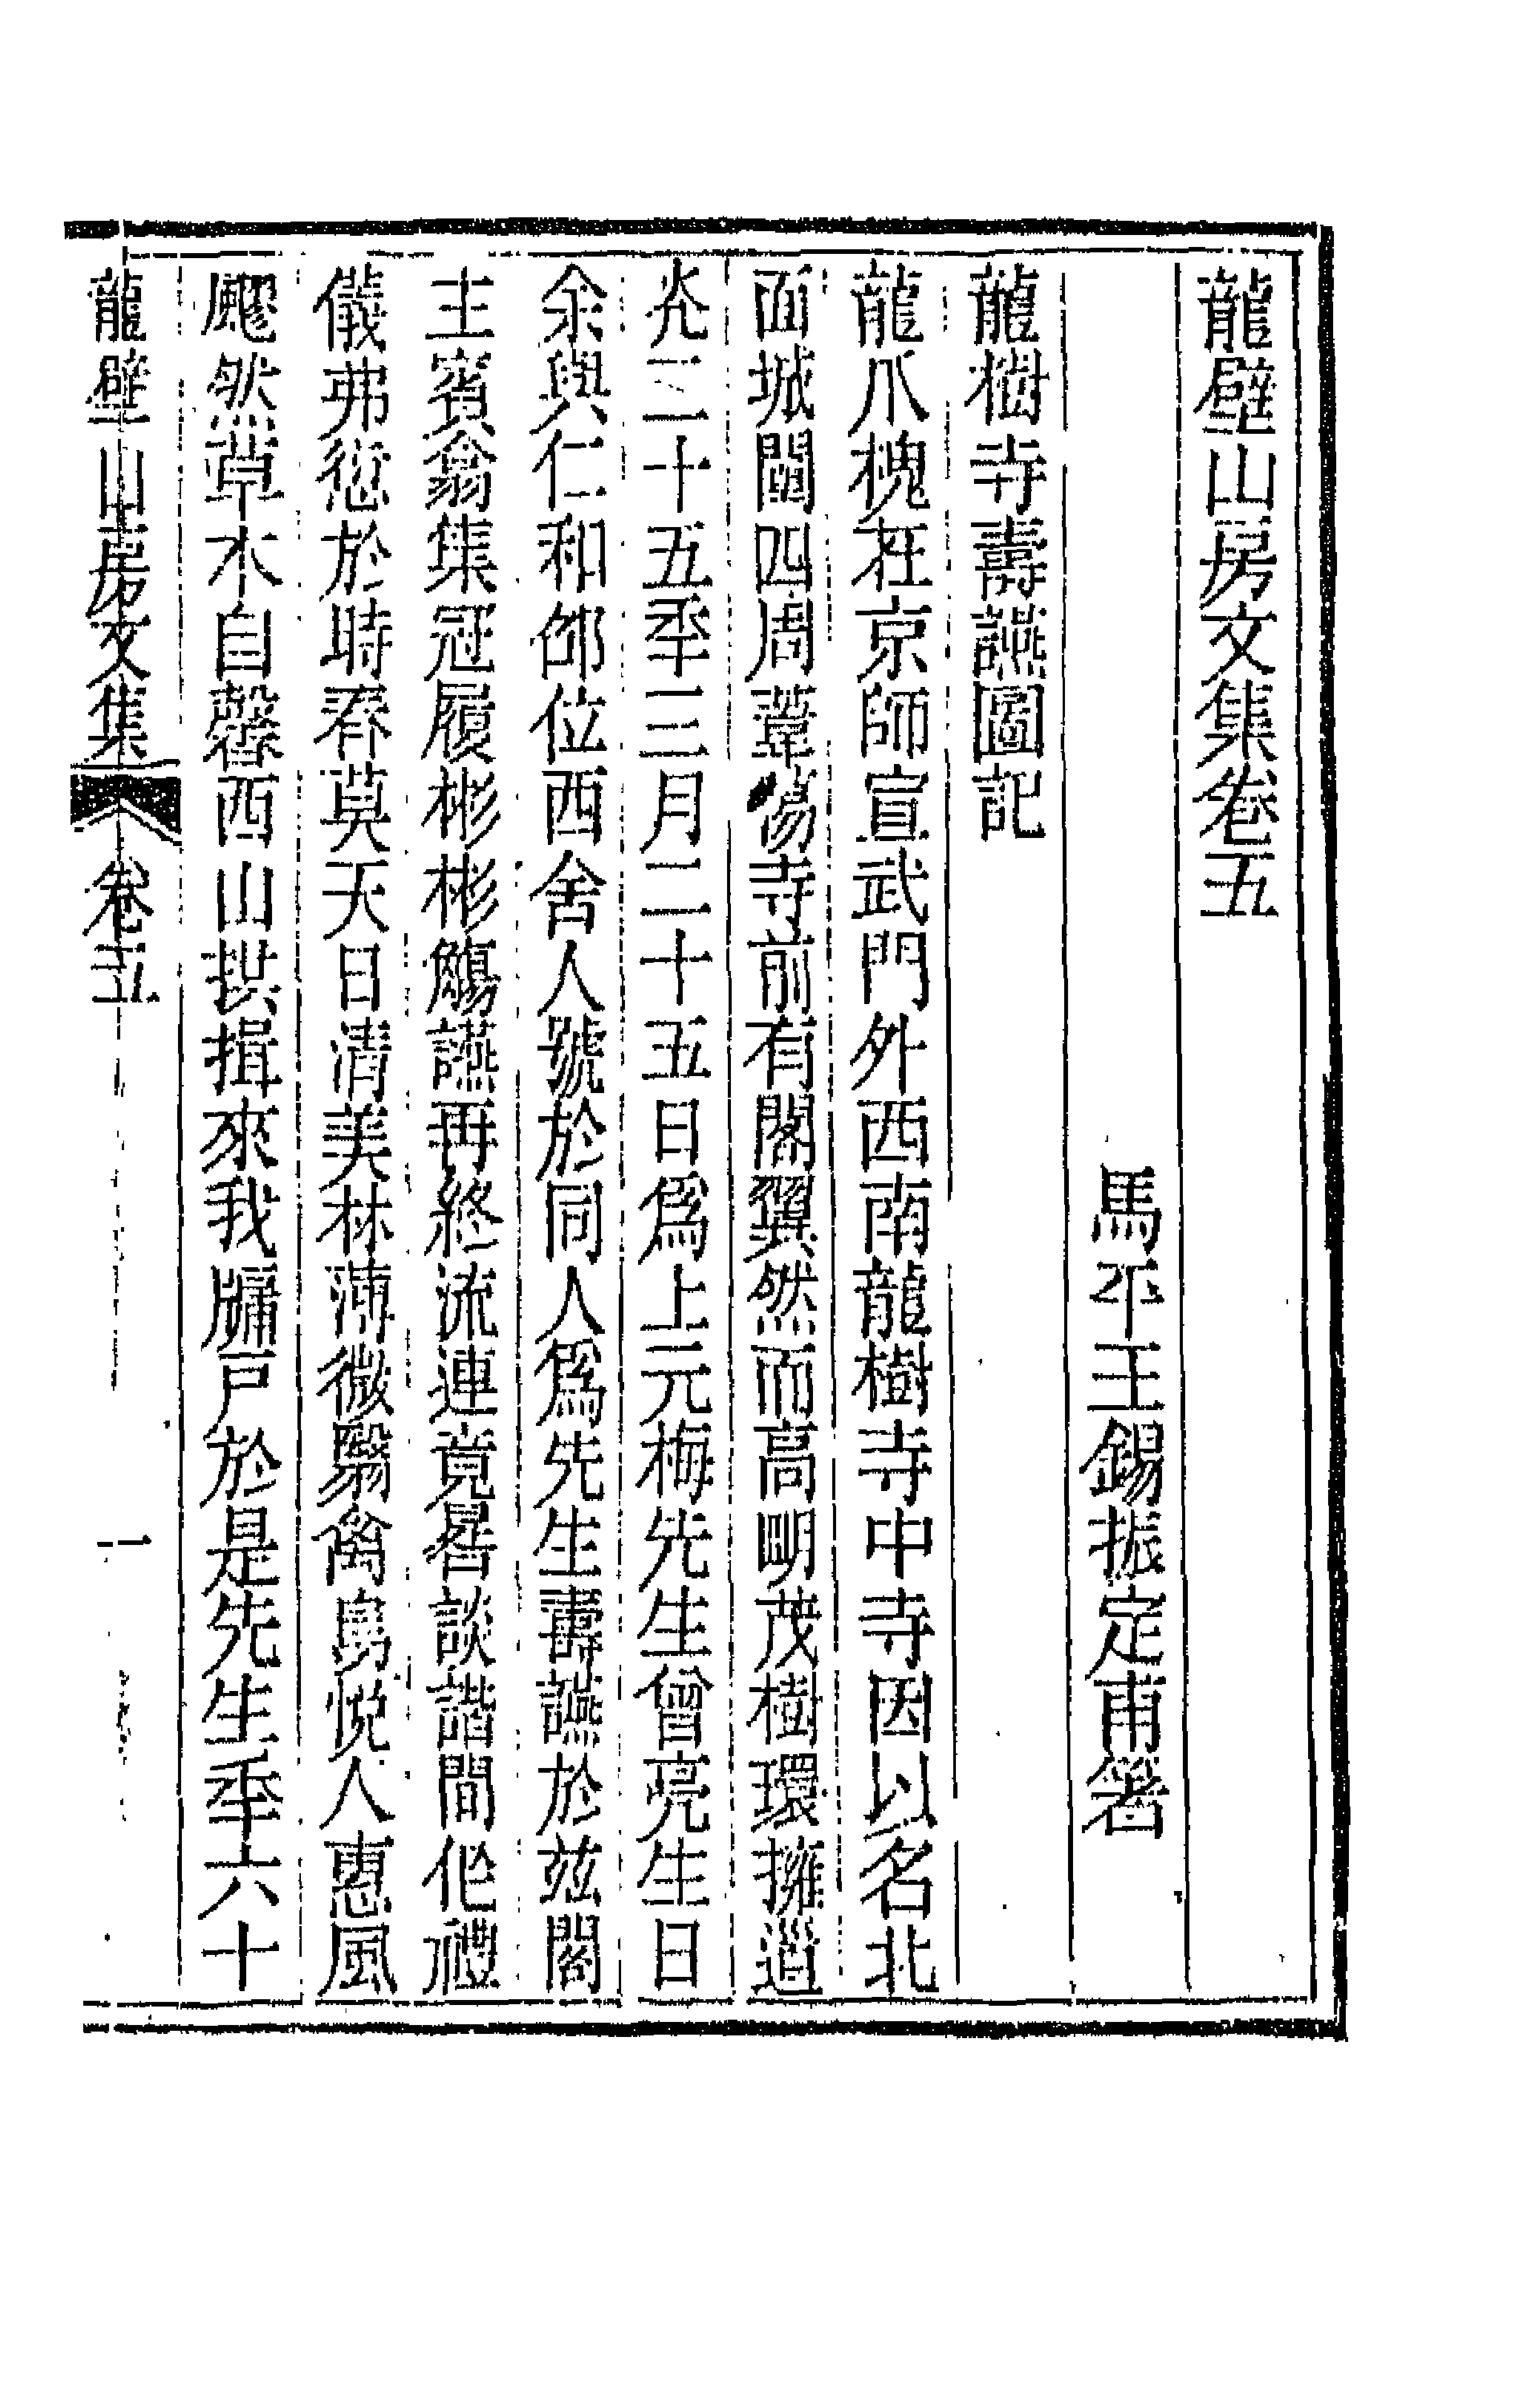 龍壁山房文集卷五
馬平王錫振定甫箸
龍樹寺壽讌圖記
龍爪槐在京師宣武門外西南龍樹寺中寺因以名北
面城闉四周葦蕩寺前有閣翼然而高朙茂樹環擁道
光二十五秊三月二十五日爲上元梅先生曾亮生日
余與仁和邵位西舍人號於同人爲先生壽讌於兹閣
主賓翕集冠履彬彬觴讌再終流連竟晷談諧間作禮
儀弗愆於時春莫天日清美林薄微翳禽鳥悦人惠風
飂然草木自馨西山拱揖來我牖戸於是先生秊六十
龍壁山房文集 卷五 一